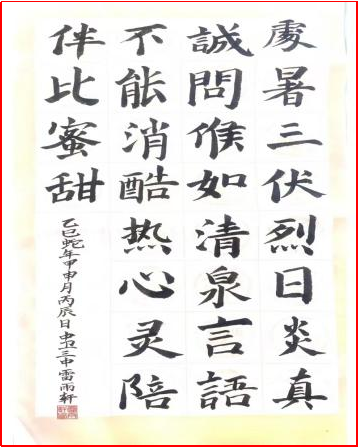 處暑三伏烈日炎真
誠問候如清泉言語
不能消酷热心灵陪
伴比蜜甜
乙巳蛇年甲申月丙辰日卫三申雷雨軒